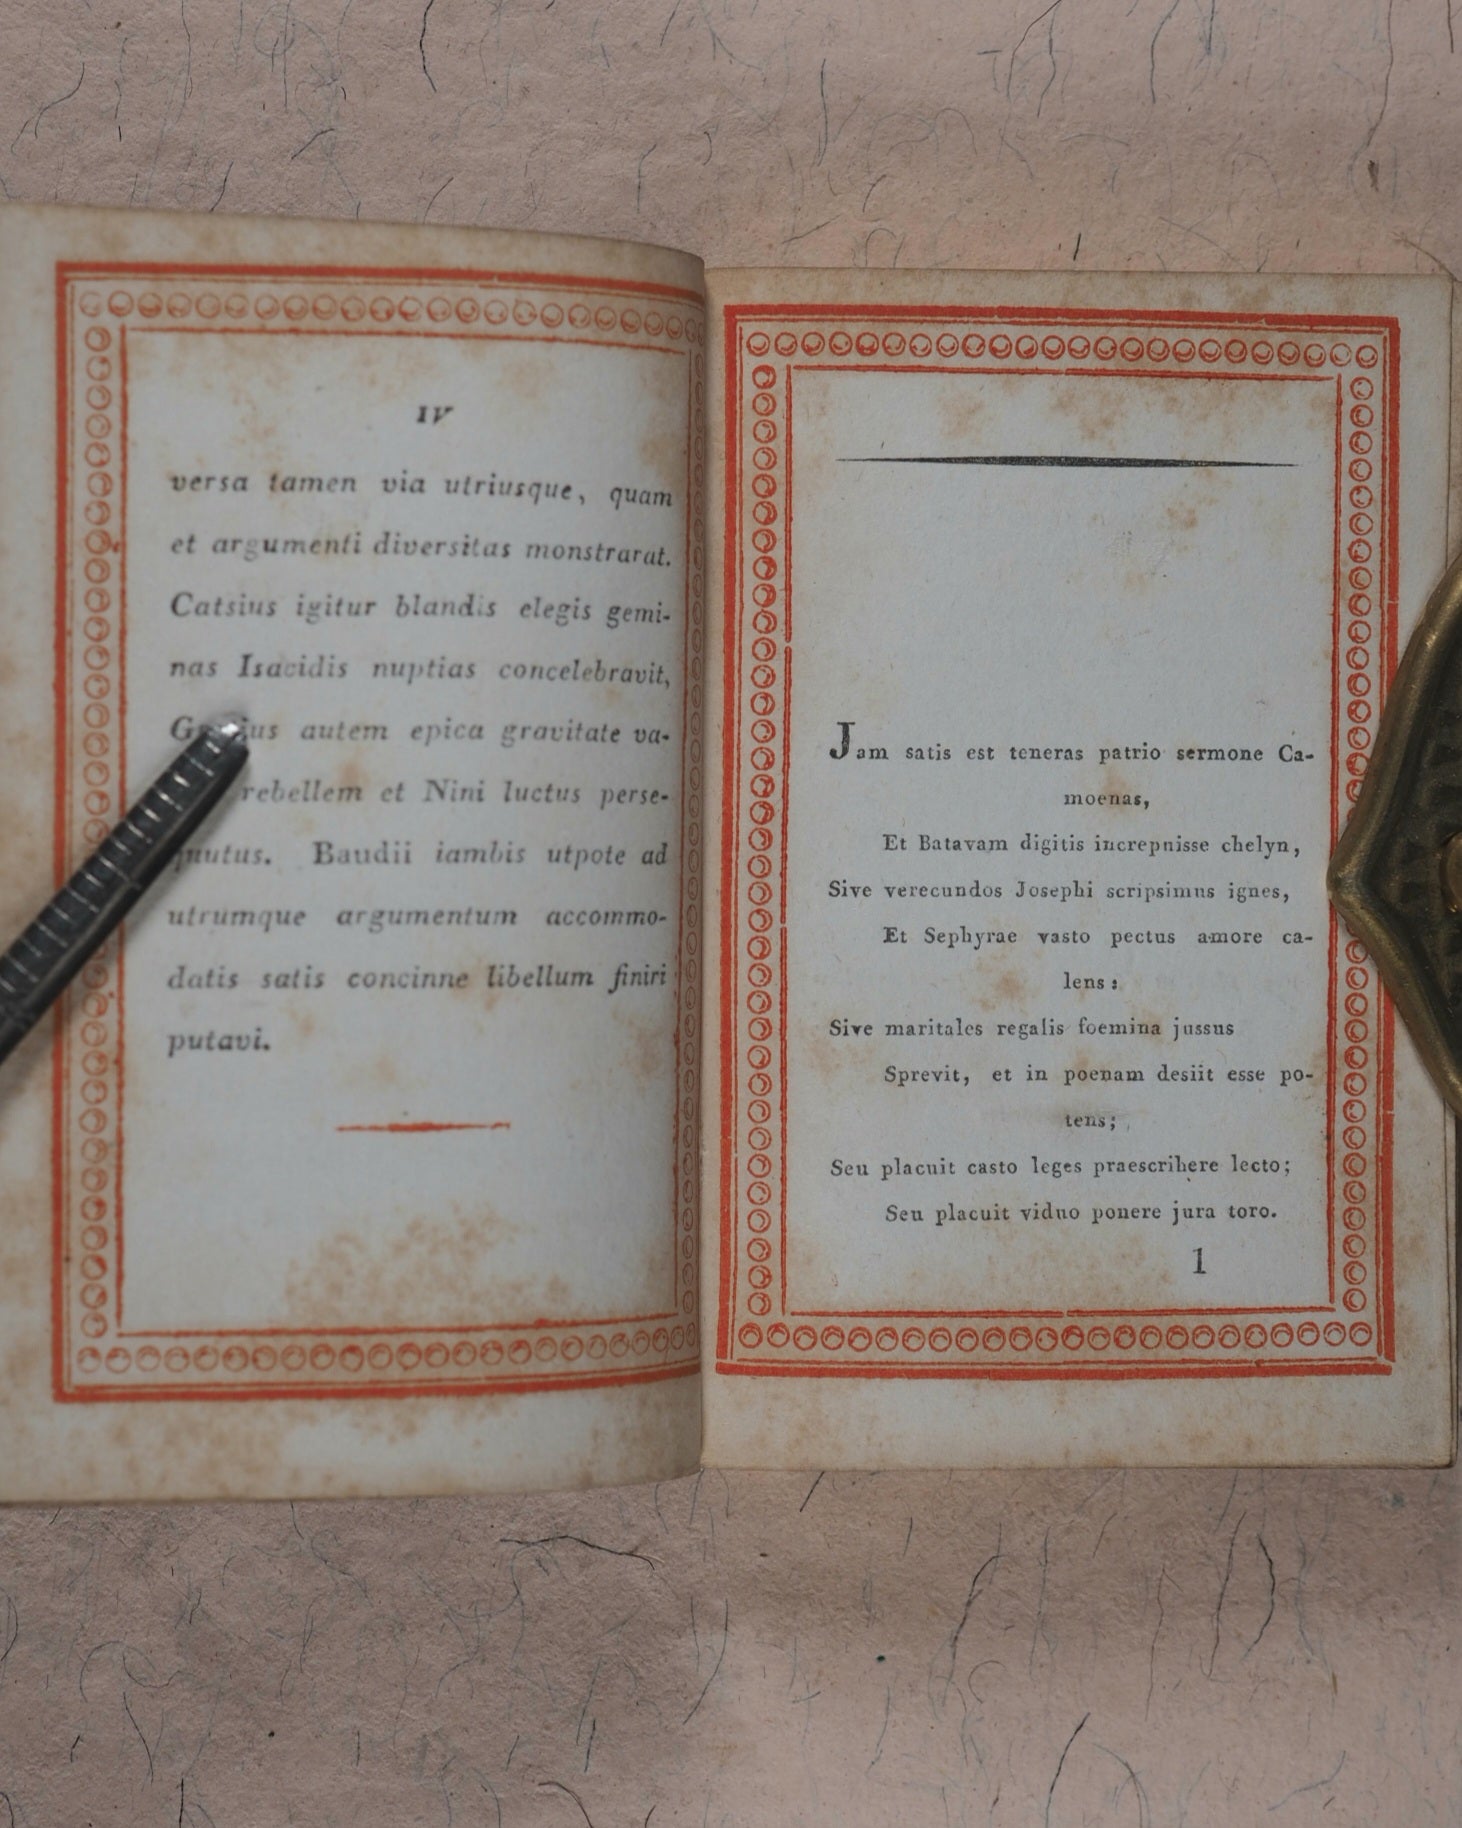 IV
versa tamen via utriusque, quam
et argumenti diversitas monstrarat.
Catsius igitur blandis elegis gemi-
nas Isacidis nuptias concelebravit,
autem epica gravitate va-
rebellem et Nini luctus perse-
quutus. Baudii iambis utpote ad
utrumque argumentum accommo-
datis satis concinne libellum finiri
putavi.
Jam satis est teneras patrio sermone Ca-
moenas,
Et Batavam digitis increpuisse chelyn,
Sive verecundos Josephi scripsimus ignes,
Et Sephyrae vasto pectus amore ca-
lens:
Sive maritales regalis foemina jussus
Sprevit, et in poenam desiit esse po-
tens;
Seu placuit casto leges praescribere lecto;
Seu placuit viduo ponere jura toro.
1